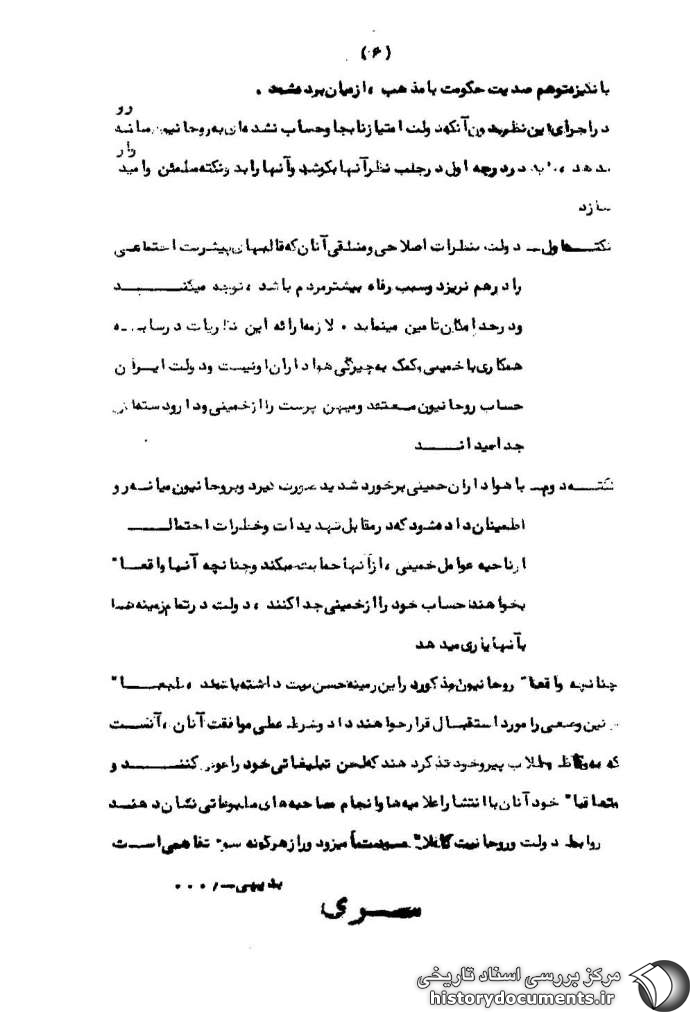 (۶)
با نگیزه توهم ضدیت حکومت با مذهب ، از میان برده شود .
در اجرای این نظر بدون آنکه دولت امتیاز نابجا و حساب نشده ای به روحانیون میانه رو
بدهد ، باید در درجه اول در جلب نظر آنها بکوشد و آنها را بدو نکته مطمئن و امیدوار
سازد
نکته اول ـ دولت بنظرات اصلاحی و منطقی آنان که قالبهای پیشرفت اجتماعی
را در هم نریزد و سبب رفاه بیشتر مردم باشد ، توجه میکند
و در حد امکان تامین مینماید . لازمه ارائه این نظریات در سایه
همکاری با خمینی و کمک به چیرگی هواداران او نیست و دولت ایران
حساب روحانیون معتقد و میهن پرست را از خمینی و دارودسته اش
جدا میداند
نکته دوم ـ با هواداران خمینی برخورد شدید صورت گیرد و بروحانیون میانه رو
اطمینان داده شود که در مقابل تهدیدات و خطرات احتمالی
از ناحیه عوامل خمینی ، از آنها حمایت میکند و چنانچه آنها واقعا"
بخواهند حساب خود را از خمینی جدا کنند ، دولت در تمام زمینه ها
بآنها یاری میدهد
چنانچه واقعا" روحانیون مذکور در این زمینه حسن نیت داشته باشند ، طبعا"
چنین وضعی را مورد استقبال قرار خواهند داد و شرط عملی موافقت آنان ، آنست
که به وعاظ و طلاب پیرو خود تذکر دهند که لحن تبلیغاتی خود را عوض کنند و
متعاقبا" خود آنان با انتشار اعلامیه ها و انجام مصاحبه های مطبوعاتی نشان دهند
روابط دولت و روحانیت کاملا" مسالمت آمیز و دور از هرگونه سوء تفاهمی است
بدیهی ـ / ۰۰۰
سری
مرکز بررسی اسناد تاریخی
historydocuments.ir